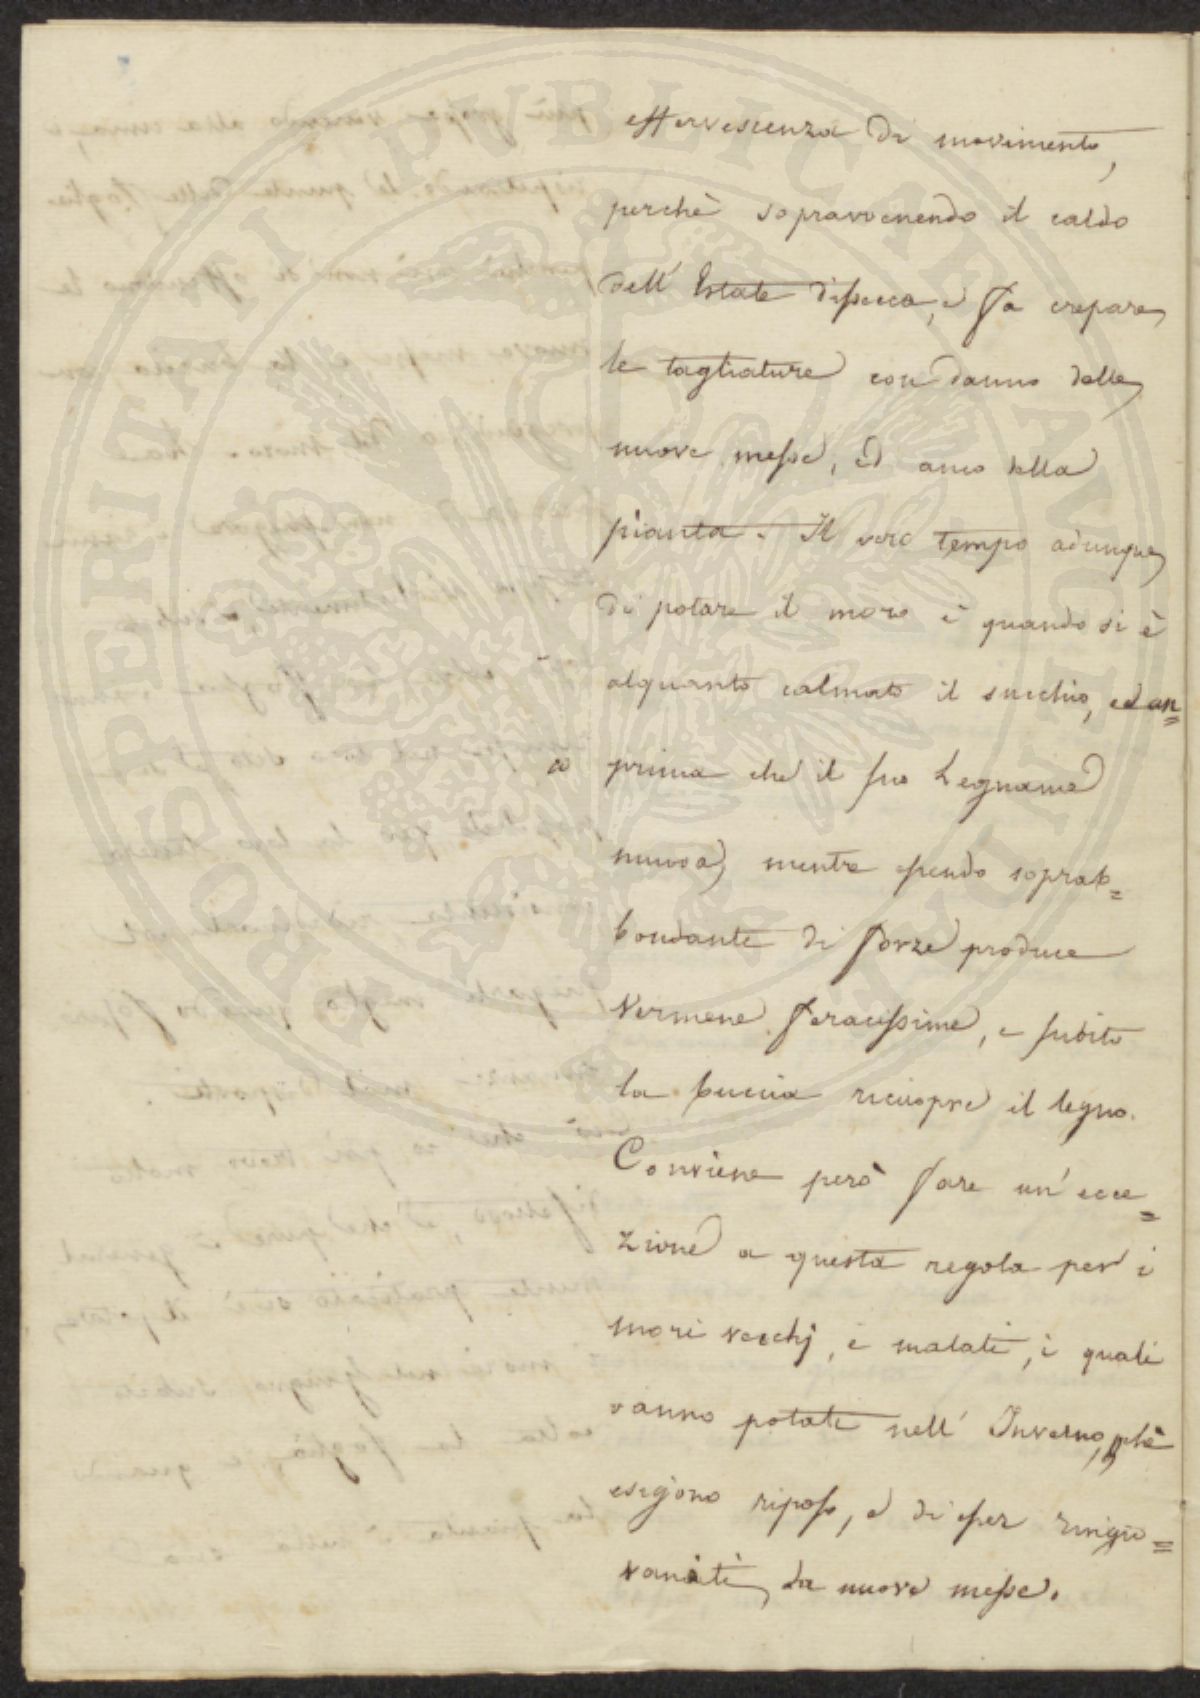 effervescenza di movimento,
perchè sopravvenendo il caldo
dell' Estate dissecca, e fa crepare
le tagliature con danno delle
nuove messe, ed anco della
pianta. Il vero tempo adunque
di potare il moro è quando si è
alquanto calmato il succhio, ed an=
prima che il suo Legname
muova, mentre essendo soprab=
bondante di forze produce
Vermene feracissime, e subito
la buccia ricuopre il legno.
Conviene però fare un' ecce=
zione a questa regola per i
mori vecchj, e malati, i quali
vanno potati nell' Inverno, pchè
esigono riposo, e di esser ringio=
vaniti da nuove messe.
PROSPERITATI PUBLICAE AUGENDAE